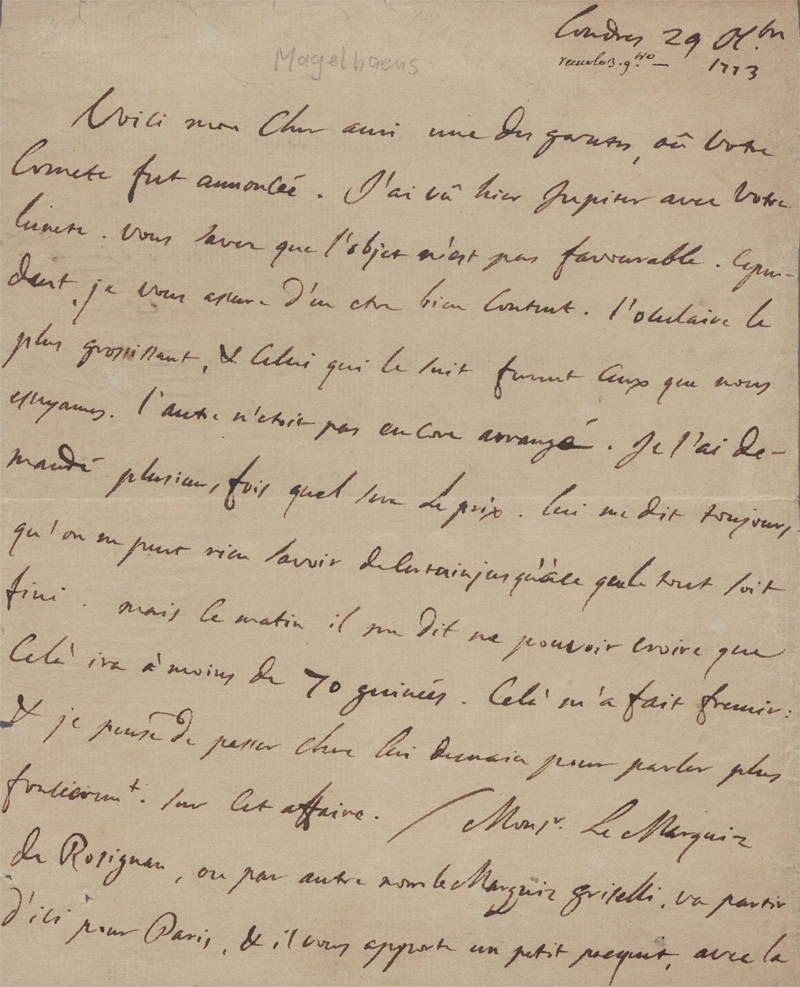 Londres 29 8.bre
Magelhaens
1773
Voici mon Cher ami une des gazettes, où Votre
Comete fut annoncée. J'ai vû hier Jupiter avec Votre
lunete. Vous savez que l'objet n'est pas favourable. Cepen-
dant, je vous assure d'en etre bien Content. l'oculaire le
plus grossissant, & Celui qui le suit furent Ceux que nous
essayames. l'autre n'etoit pas encore arrangé. Je l'ai de-
mandé plusieurs fois quel sera Le prix. lui me dit toujours,
qu'on ne peut rien savoir de Certain jusqu'à ce que le tout soit
fini. mais Ce matin il me dit ne pouvoir croire que
Celà ira à moins de 70 guinées. Celà m'a fait fremir:
& je pense de passer chez lui demain pour parler plus
sur Cet affaire. / Monsr. Le Marquiz
de Rosignan, ou par autre nom le Marquiz griselli, va partir
d'ici pour Paris, & il vous apporte un petit pacquet, avec la